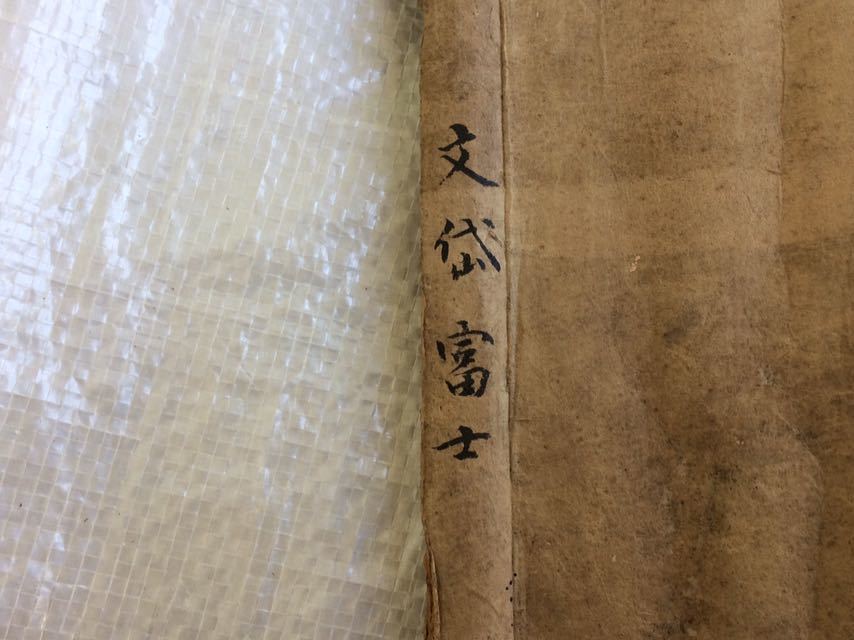 文岱富士